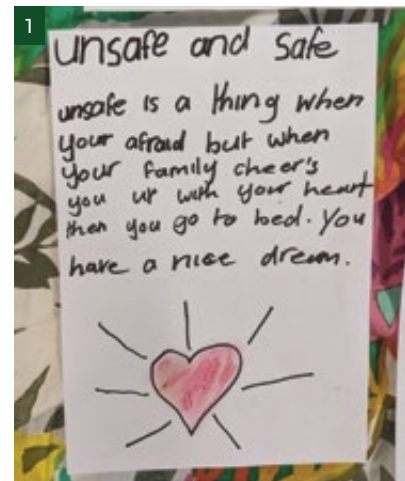 1
unsafe and safe
unsafe is a thing when
your afraid but when
your family cheer's
you up with your heart
then you go to bed. You
have a nice dream.